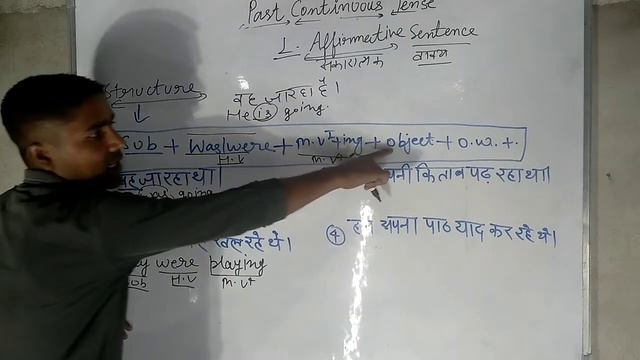 Past Continuous Tense
1. Affirmative Sentence
सकारात्मक वाक्य
Structure
वह जा रहा है।
He is going.
Sub + Was/were + m.v⁴ + ing + object + o.w. + .
H.V m.v⁴
जा रहा था।
अपनी किताब पढ़ रहा था।
going
खेल रहे थे।
④ हम अपना पाठ याद कर रहे थे।
were playing
Sub H.V m.v⁴